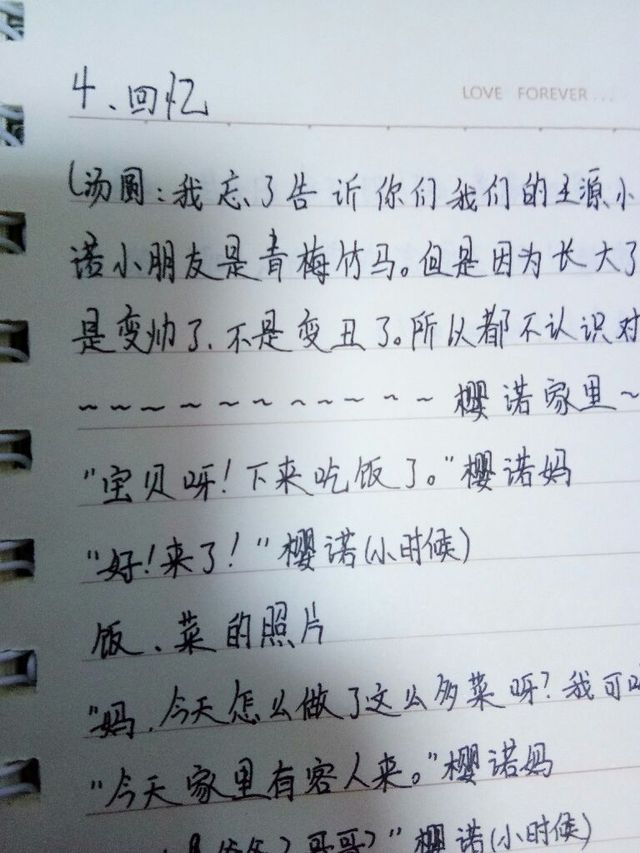 LOVE FOREVER...
4、回忆
(汤圆:我忘了告诉你们我们的王源小
诺小朋友是青梅竹马。但是因为长大了
是变帅了、不是变丑了。所以都不认识对
~~~~~~~~~~樱诺家里~
"宝贝呀!下来吃饭了。"樱诺妈
"好!来了!"樱诺(小时候)
饭、菜的照片
"妈,今天怎么做了这么多菜呀?我可
"今天家里有客人来。"樱诺妈
哥哥?"樱诺(小时候)